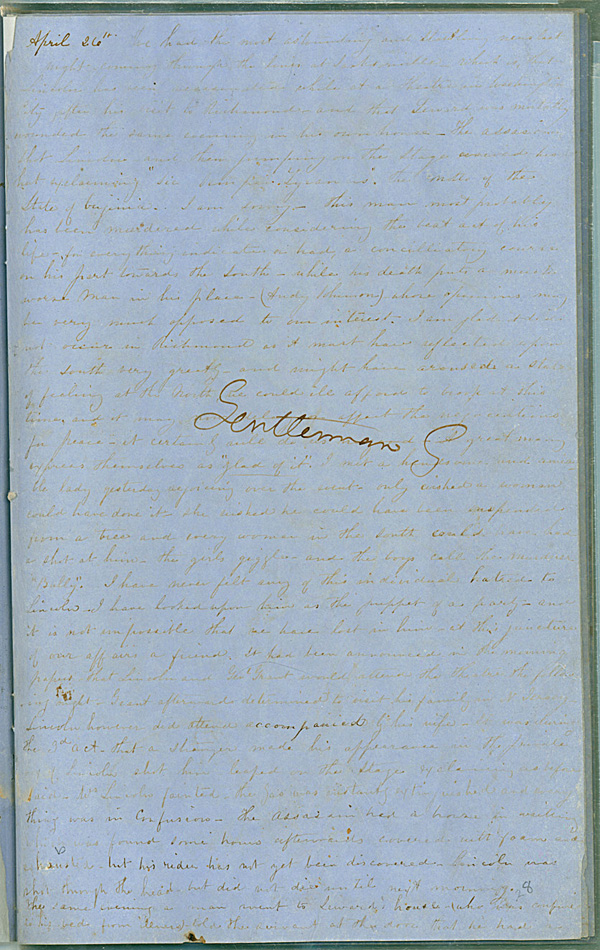 April 26th. We have the most astounding and startling news last
night coming through the lines at
Lincoln has been assassinated while at a Theatre in Washington
City after his visit to Richmond and that Seward was mortally
wounded the same evening in his own house - The assassin
shot Lincoln and then jumping on the stage
exclaiming "sic semper tyrannis" the motto of the
State of Virginia. I am sorry - this man most probably
has been murdered whilst considering the best act of his
life - for everything indicated a conciliating course
on his part towards the South - while his death puts a much
worse man in his place - (Andy Johnson) whose opinions may
be very much opposed to our interest. I am glad it did
not occur in Richmond as it must have reflected upon
the South very greatly - and might have aroused a state
of feeling at the North we could ill afford to at this
time and it may affect the negotiations
for peace - yet certain a great many
Gentleman
express themselves as "glad of it". I met a
lady yesterday rejoicing over the event - only wished a woman
could have done it - she wished he could have been suspended
from a tree and every woman in the South could have had
a shot at him - the girls giggle - and the boys call him
"Bully". I have never felt any of this individual hatred to
Lincoln. I have looked upon him as the puppet of a party - and
it is not impossible that we have lost in him - at this juncture
of our affairs a friend. It had been announced in the morning
papers that Lincoln and Gen Grant would attend the theatre the follow
ing night - Grant afterwards determined to visit his family in New Jersey
Lincoln however did attend accompanied by his wife - It was during
the 3d act - that a stranger made his appearance in the private
box of Lincoln shot him leaped on the Stage exclaiming as
- Mrs Lincoln fainted - the gas was instantly extinguished and every
thing was in Confusion - The Assassin had a horse in waiting
was found some hours afterwards covered with foam and
but his rider has not yet been discovered - Lincoln was
shot through the head but did not die until next morning. &
the same evening a man went to Seward's house (who was confined
to his bed from illness) told the servant at the door that he had